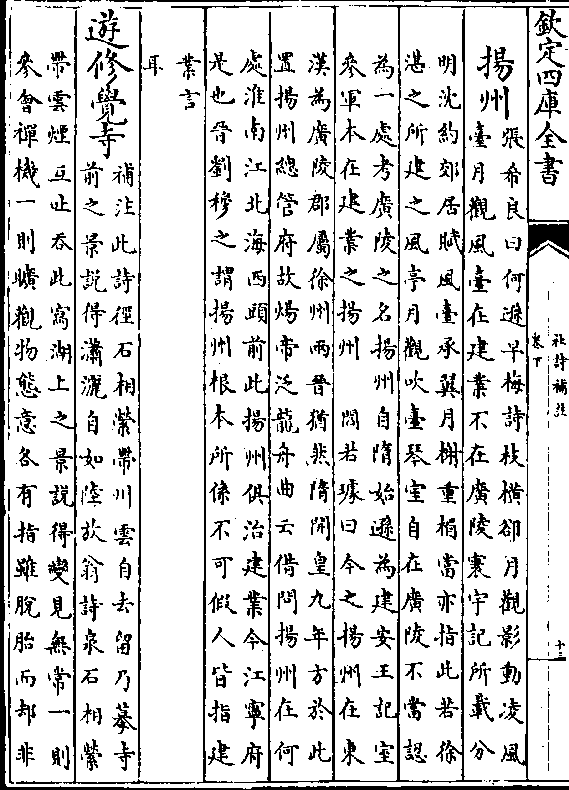 欽定四庫全書
杜詩補註
卷下
十三
揚州
張希良曰何遜早梅詩枝橫郤月觀影動凌風
臺月觀風臺在建業不在廣陵寰宇記所載分
明沈約郊居賦風臺承翼月榭重楣當亦指此若徐
湛之所建之風亭月觀吹臺琴室自在廣陵不當認
為一處考廣陵之名揚州自隋始遜為建安王記室
參軍本在建業之揚州　閻若璩曰今之揚州在東
漢為廣陵郡屬徐州兩晉猶然隋開皇九年方於此
置揚州總管府故煬帝泛龍舟曲云借問揚州在何
處淮南江北海西頭前此揚州俱治建業今江寧府
是也晉劉穆之謂揚州根本所係不可假人皆指建
業言
耳
遊修覺寺
補注此詩徑石相縈帶川雲自去留乃摹寺
前之景說得瀟灑自如陸放翁詩泉石相縈
帶雲煙互吐吞此寫湖上之景說得變見無常一則
參會禪機一則曠觀物態意各有指雖脫胎而却非